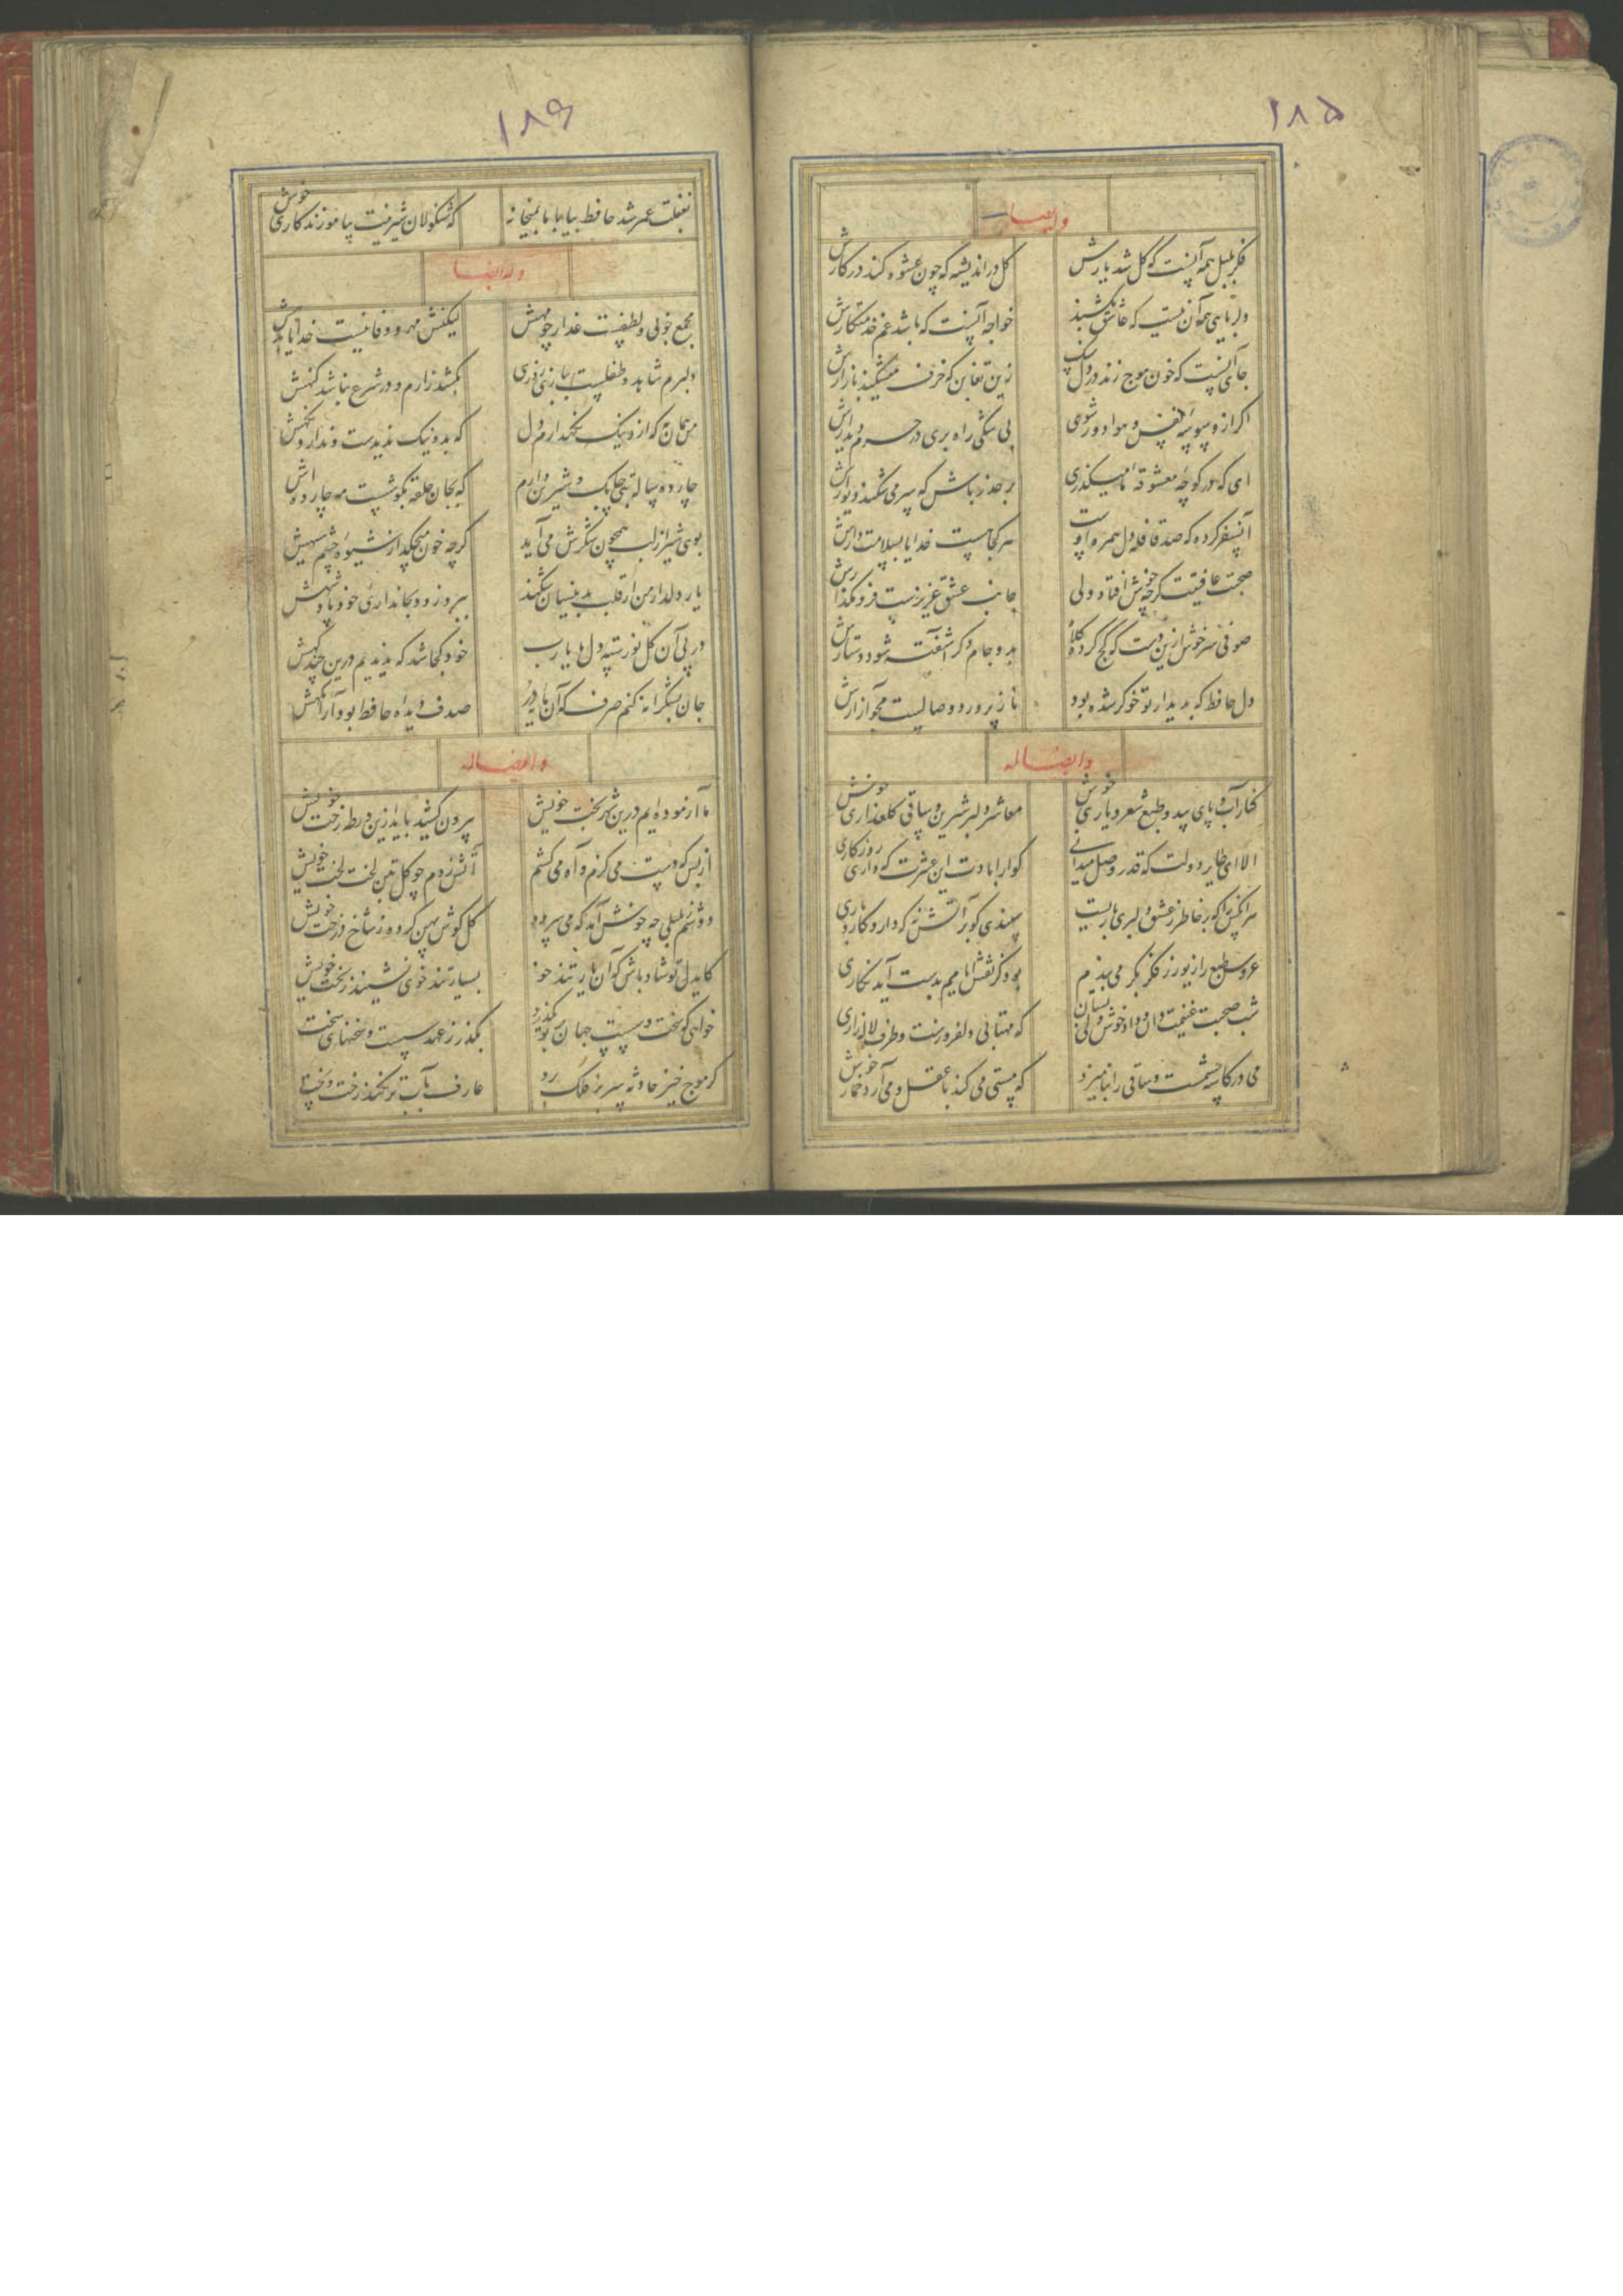 ۱۸۵
وله ایضا
فکر بلبل همه آنست که گل شد یارش
گل در اندیشه که چون عشوه کند در کارش
دلربایی همه آن نیست که عاشق بکشند
خواجه آنست که باشد غم خدمتکارش
جای آنست که خون موج زند در دل
زین تغابن که خزف میشکند بازارش
اگر از وسوسه نفس و هوا دور شوی
بی شکی راه بری در حرم دیدارش
ای که در کوچه معشوقه ما میگذری
بر حذر باش که سر می شکند دیوارش
آن سفر کرده که صد قافله دل همره اوست
هر کجا هست خدایا بسلامت دارش
صحبت عافیتت گرچه خوش افتاد ولی
جانب عشق عزیزست فرو مگذارش
صوفی سرخوش ازین دست که کج کرد کلاه
بدو جام دگر آشفته شود دستارش
دل حافظ که بدیدار تو خوگر شده بود
ناز پرورد وصالست مجو آزارش
وایضا له
کنار آب و پای بید و طبع شعر و یاری خوش
معاشر دلبر شیرین و ساقی گلعذاری خوش
الا ای طایر دولت که قدر وصل میدانی
گوارا بادت این عشرت که داری روزگاری
هر آنکس را که بر خاطر ز عشق دلبری باریست
سپندی گو بر آتش نه که دارد کاروباری
عروس طبع را زیور ز فکر بکر می بندم
بود کز نقش ایامم بدست آید نگاری
شب صحبت غنیمت دان و داد خوش دلی بستان
که مهتابی دلفروزست و طرف لاله زاری
می در کاسه چشمست ساقی را بنامیزد
که مستی می کند با عقل و می آرد خمار خوش
۱۸۶
بغفلت عمر شد حافظ بیا با ما بمیخانه
که شنگولان سرمستت بیاموزند کاری خوش
وله ایضا
مجمع خوبی و لطفست عذار چو مهش
لیکنش مهر و وفا نیست خدایا بدهش
دلبرم شاهد و طفلست ببازی روزی
بکشد زارم و در شرع نباشد گنهش
من همان به که ازو نیک نگهدارم دل
که بد و نیک ندیدست و ندارد نگهش
چارده ساله بتی چابک و شیرین دارم
که بجان حلقه بگوشست مه چارده اش
بوی شیر از لب همچون شکرش می آید
گرچه خون میچکد از شیوه چشم سیهش
یار دلدار من ار قلب بدینسان شکند
ببرد زود بجانداری خود پادشهش
در پی آن گل نورسته دل ما یارب
خود کجا شد که ندیدیم درین چند گهش
جان بشکرانه کنم صرف گر آن دانه در
صدف دیده حافظ بود آرامگهش
وایضا له
ما آزموده ایم درین شهر بخت خویش
بیرون کشید باید ازین ورطه رخت خویش
از بس که دست می گزم و آه می کشم
آتش زدم چو گل بتن لخت لخت خویش
دوشم ز بلبلی چه خوش آمد که می سرود
گل گوش پهن کرده ز شاخ درخت خویش
کایدل تو شاد باش که آن یار تند خو
بسیار تند خوی نشیند ز بخت خویش
خواهی که سخت و سست جهان بر تو بگذرد
بگذر ز عهد سست و سخنهای سخت
گر موج خیز حادثه سر بر فلک زند
عارف بآب تر نکند رخت و پخت